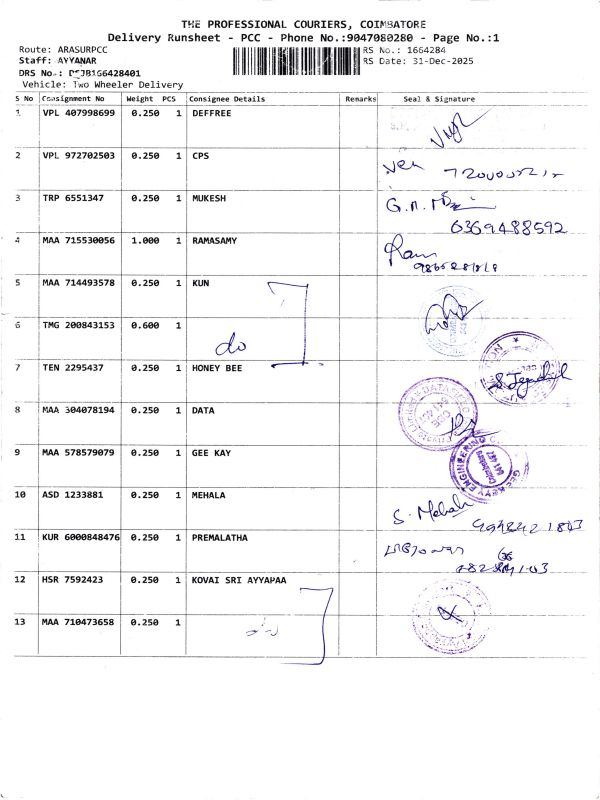 THE PROFESSIONAL COURIERS, COIMBATORE
Delivery Runsheet - PCC - Phone No.:9047080280 - Page No.:1
Route: ARASURPCC
RS No.: 1664284
Staff: AYYANAR
RS Date: 31-Dec-2025
DRS No.:
Vehicle: Two Wheeler Delivery
S No Consignment No Weight PCS Consignee Details Remarks Seal & Signature
1 VPL 407998699 0.250 1 DEFFREE
2 VPL 972702503 0.250 1 CPS
3 TRP 6551347 0.250 1 MUKESH
6369488592
4 MAA 715530056 1.000 1 RAMASAMY
5 MAA 714493578 0.250 1 KUN
6 TMG 200843153 0.600 1
do
7 TEN 2295437 0.250 1 HONEY BEE
8 MAA 304078194 0.250 1 DATA
9 MAA 578579079 0.250 1 GEE KAY
10 ASD 1233881 0.250 1 MEHALA
S. Mehala
11 KUR 6000848476 0.250 1 PREMALATHA
12 HSR 7592423 0.250 1 KOVAI SRI AYYAPAA
13 MAA 710473658 0.250 1